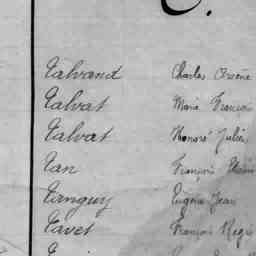 Talvand Charles Arsène
Talvat Marie François
Talvat Honoré Julien
Tan François
Tanguy Eugène Jean
Tavet François Régis